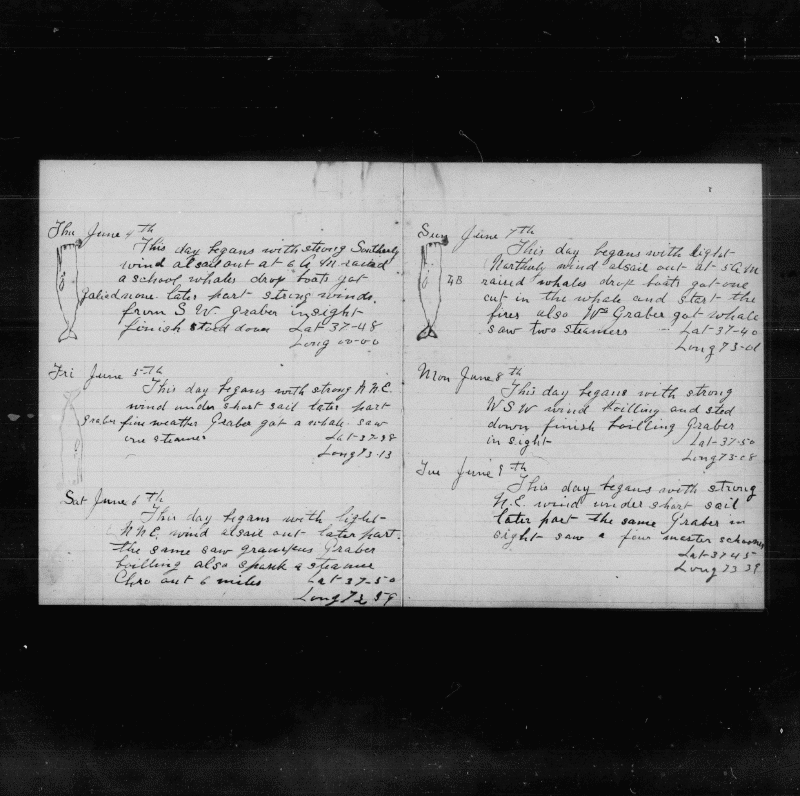 Thu June 4th
This day begans with strong Southerly
wind alsail out at 6 A.M. raised
a school whales drop boats got
galied none. later part strong winds.
from S W. Graber insight
finish stood down Lat 37-48
Long 00-00
Fri June 5th
This day begans with strong N.N.E.
wind under short sail later part
Graber fine weather Graber got a whale saw
one steamer Lat-37-38
Long 73-13
Sat June 6th
This day begans with light
NNE. wind alsail out later part.
the same saw grampus Graber
boilling also spark a steamer
Chro out 6 miles Lat 37-50
Long 73 59
Sun June 7th
This day begans with light
Northerly wind alsail out at 5 A M
4B raised whales drop boats got one
cut in the whale and start the
fires also Wm Graber got whale
saw two steamers Lat-37-40
Long 73-01
Mon June 8th
This day begans with strong
W S W wind boilling and sted
down finish boilling Graber
in sight Lat-37-50
Long 73-08
Tue June 9th
This day begans with strong
N.E. wind under short sail
later part the same Graber in
sight saw a four master schooner
Lat 37 45
Long 73 39